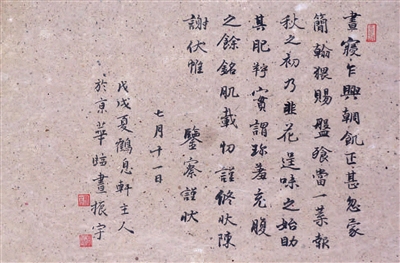 晝寢乍興朝飢正甚忽蒙
簡翰猥賜盤飧當一葉報
秋之初乃韭花逞味之始助
其肥羜實謂珍羞充腹
之餘銘肌載切謹修狀陳
謝伏惟
鑒察謹狀
七月十一日
戊戌夏鶴息軒主人
於京華晝振宇